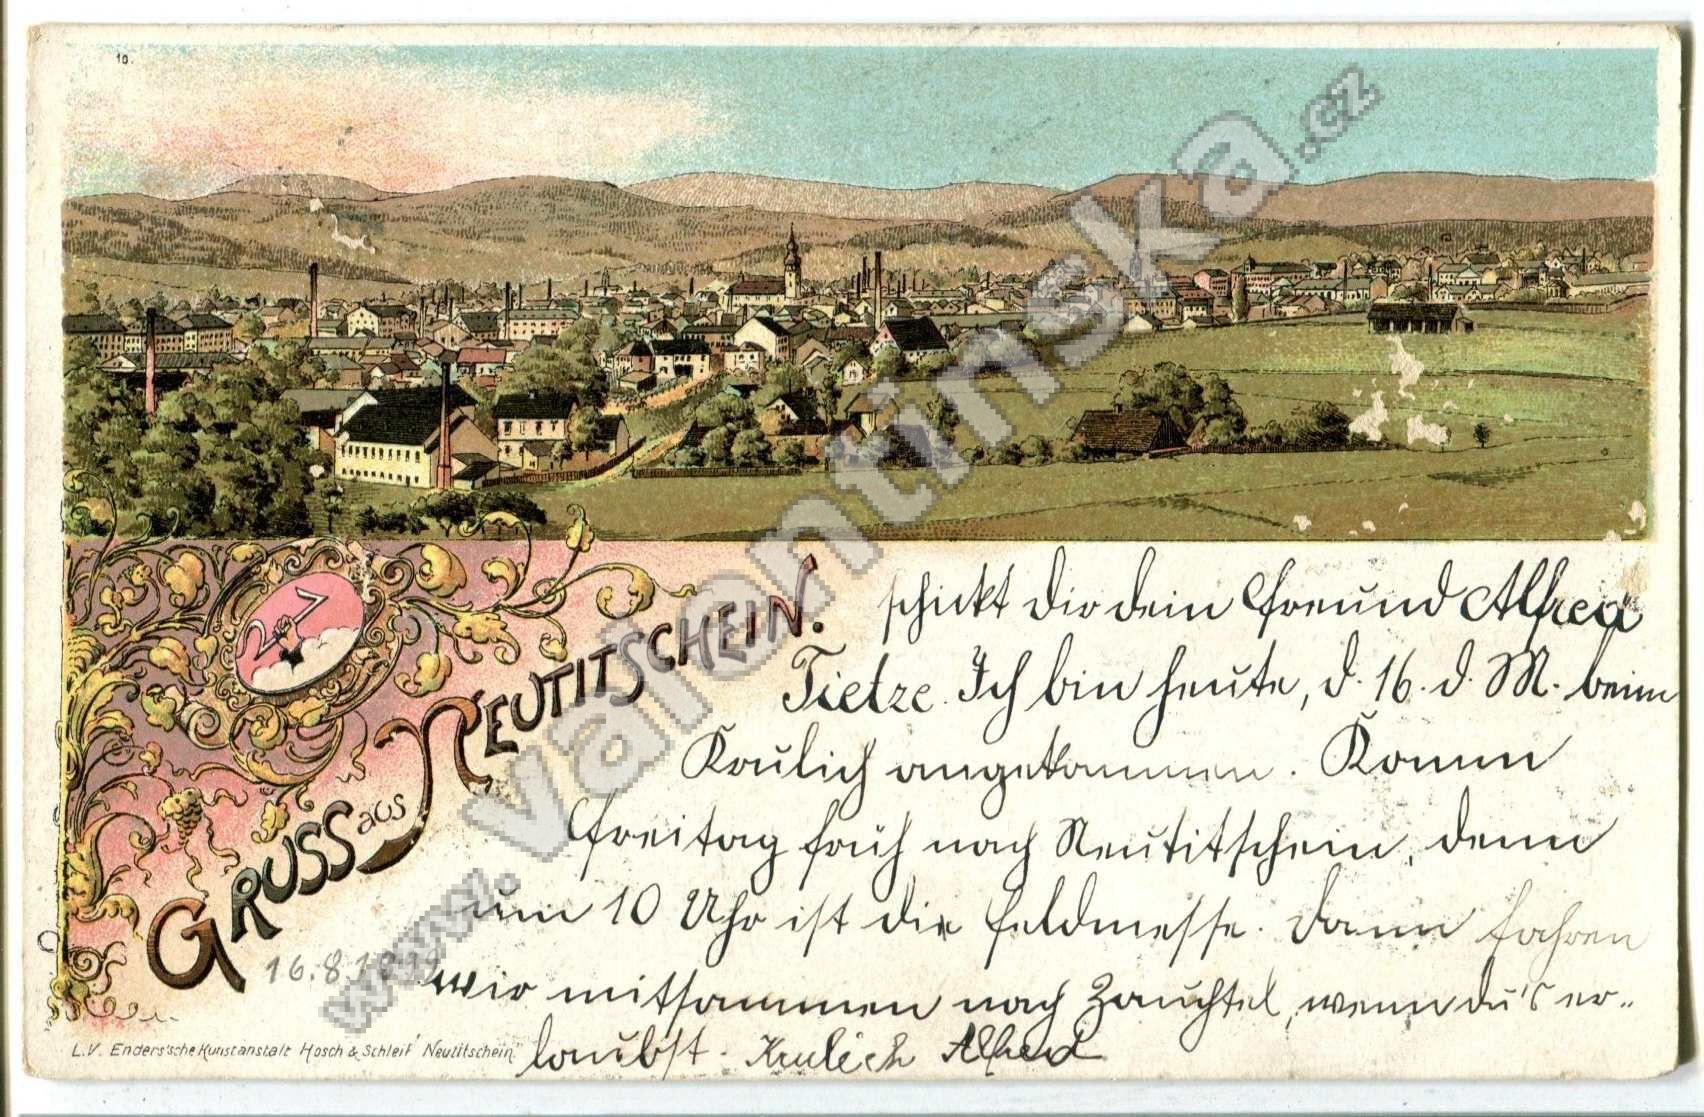 10.
www.valentinska.cz
GRUSS aus NEUTITSCHEIN.
schickt dir dein Freund Alfred
Tietze. Ich bin heute, d. 16. d. M. beim
Kaulich angekommen. Komm
Freitag früh nach Neutitschein, denn
um 10 Uhr ist die Feldmesse. Dann fahren
wir mitsammen nach Zauchtel, wenn du's er-
laubst. Kaulich Alfred
16.8.1899
L.V. Enders'sche Kunstanstalt Hosch & Schleif Neutitschein